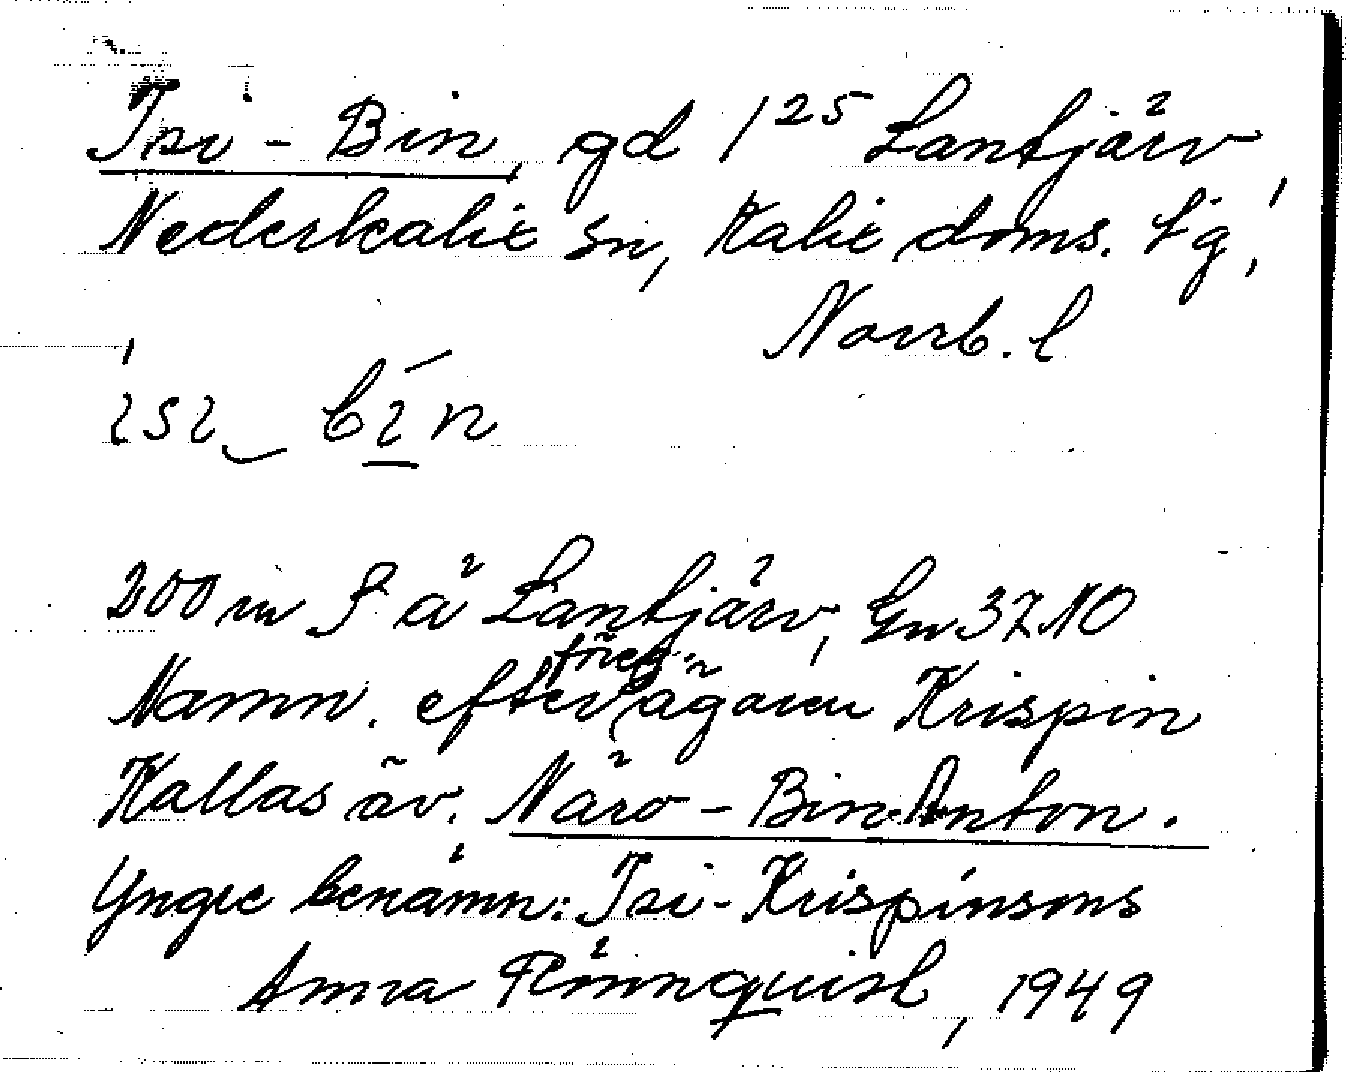 Isi - Bin, gd 1²⁵ Lantjärv,
Nederkalix sn, Kalix doms. tg,
Norrb. l
ísi‿ bí̲n
200 m S å Lantjärv, Gn 37 NO
Namn. efter föreg. ägaren Krispin
Kallas äv. Näro - Bin-Anton.
Yngre benämn: Isi-Krispinsons
Anna Rönnquist, 1949